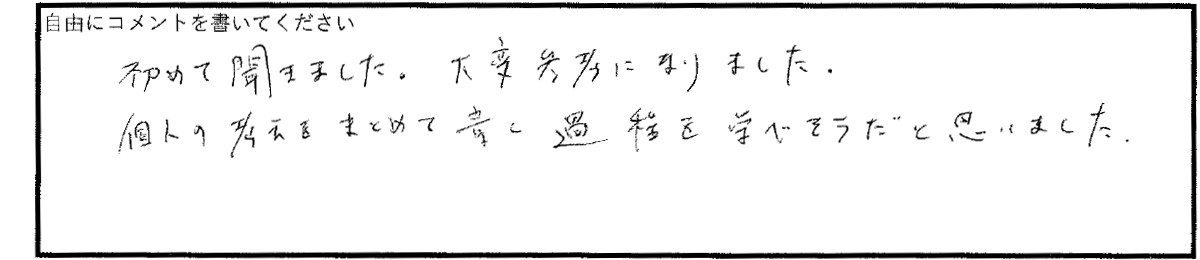 自由にコメントを書いてください
初めて聞きました。大変参考になりました.
個人の考えをまとめて書く過程を学べそうだと思いました.